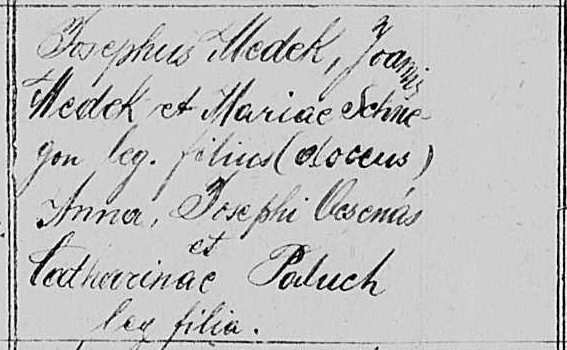 Josephus Medek, Joannis
Medek et Mariae Schne-
gon leg. filius (doceus)
Anna, Josephi Ocsenás
et
Catharinae Paluch
leg filia.